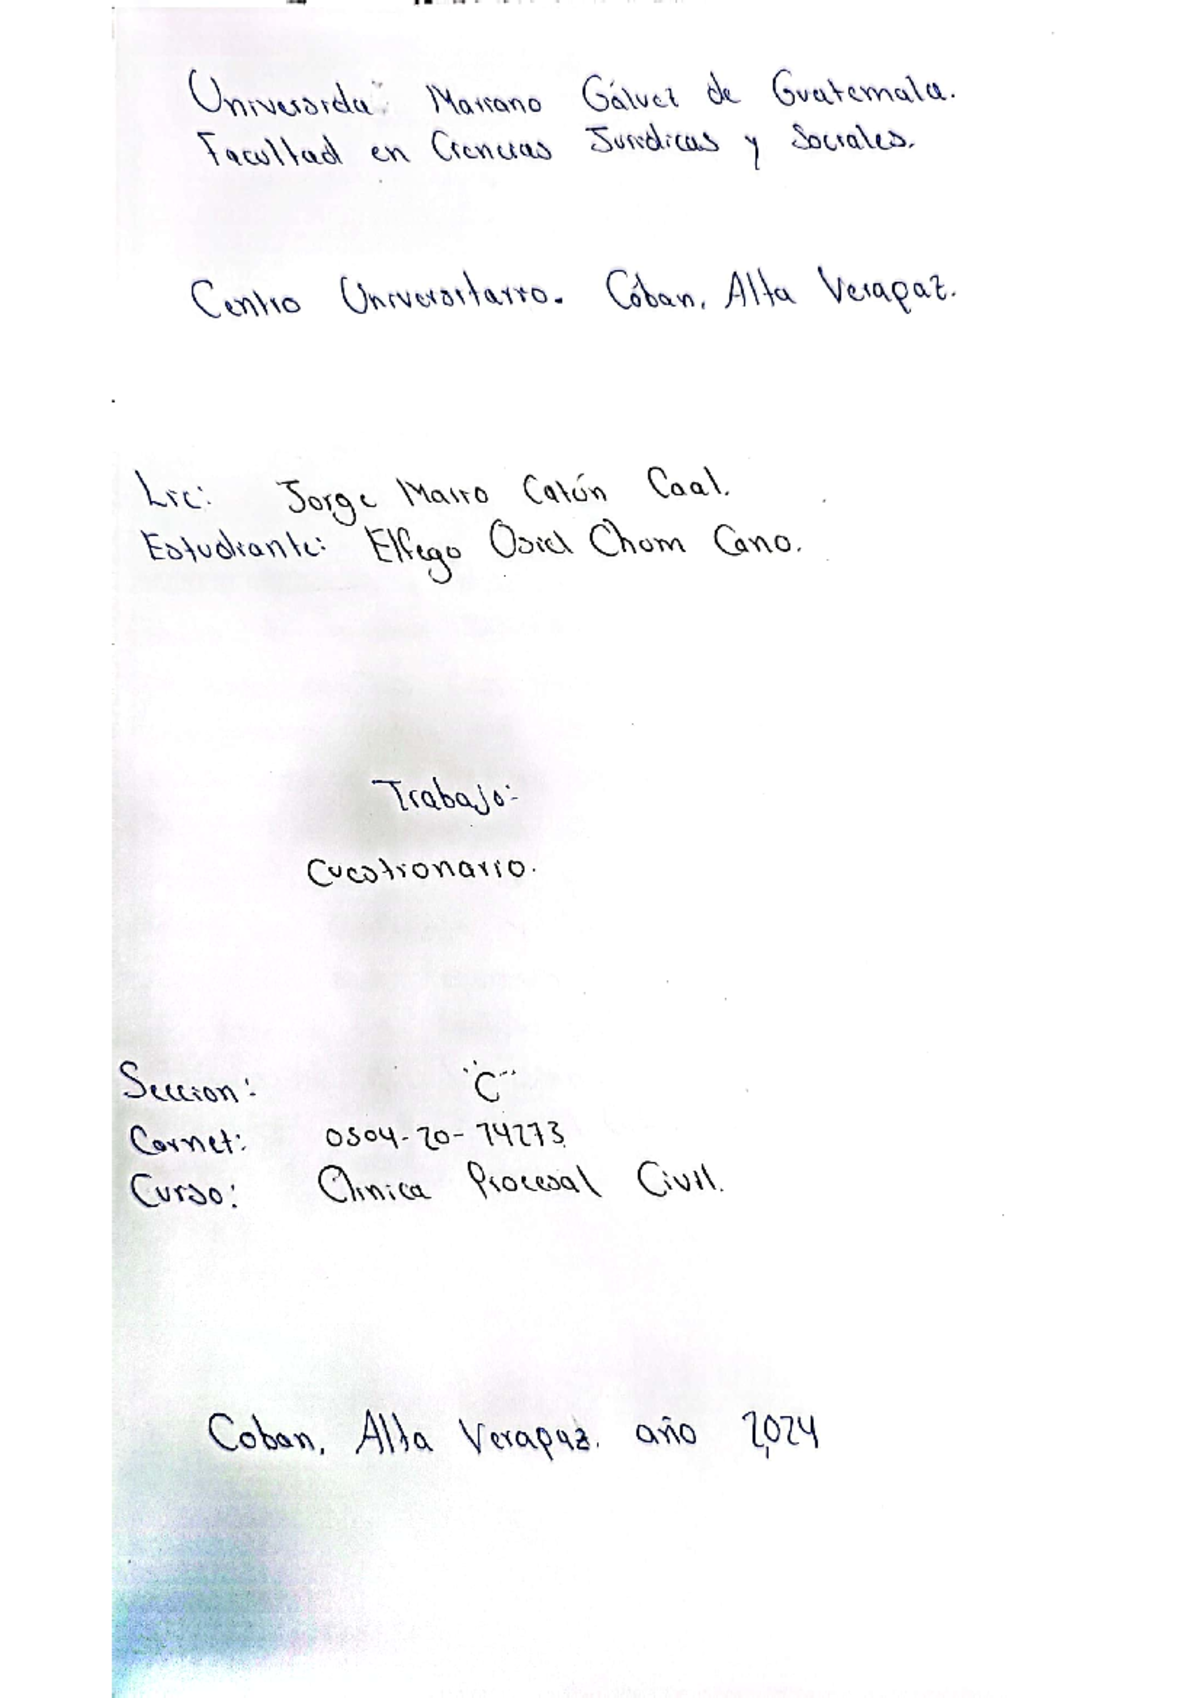 Universida Mariano Gálvez de Guatemala.
Facultad en Ciencias Juridicas y Sociales.
Centro Universitario. Cóban, Alta Verapaz.
Lic: Jorge Mario Catún Caal.
Estudiante: Elfego Osiel Chom Cano.
Trabajo:
Cuestionario.
Seccion: "C"
Carnet: 0504-20-74273
Curso: Clinica Procesal Civil.
Coban, Alta Verapaz. año 2,024